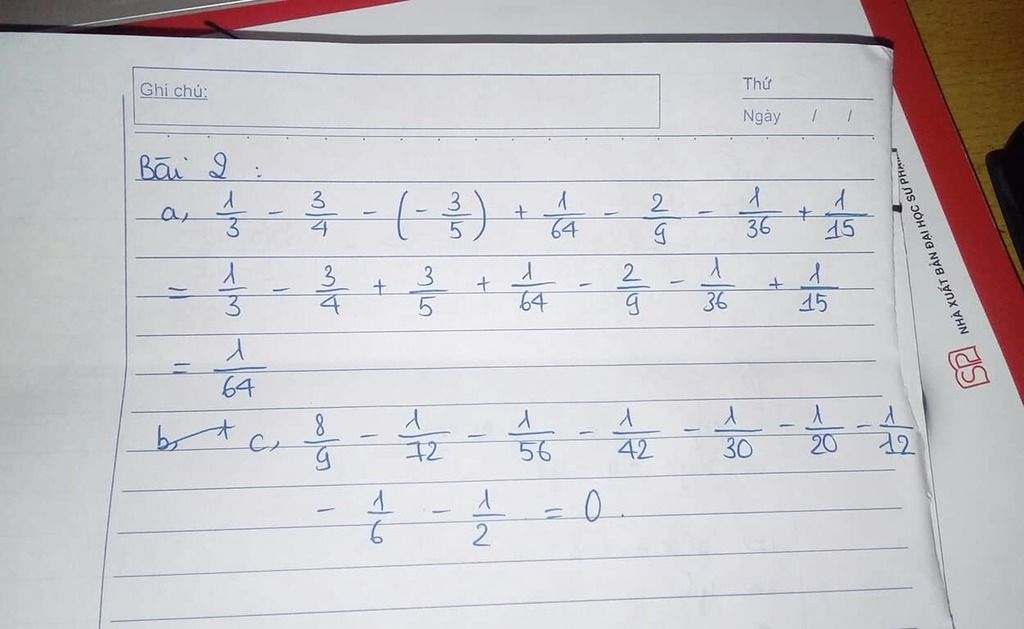 Ghi chú:
Thứ
Ngày / /
Bài 2 :
a, 1/3 - 3/4 - (- 3/5) + 1/64 - 2/9 - 1/36 + 1/15
= 1/3 - 3/4 + 3/5 + 1/64 - 2/9 - 1/36 + 1/15
= 1/64
b, c, 8/9 - 1/72 - 1/56 - 1/42 - 1/30 - 1/20 - 1/12
- 1/6 - 1/2 = 0.
NHÀ XUẤT BẢN ĐẠI HỌC SƯ PHẠM